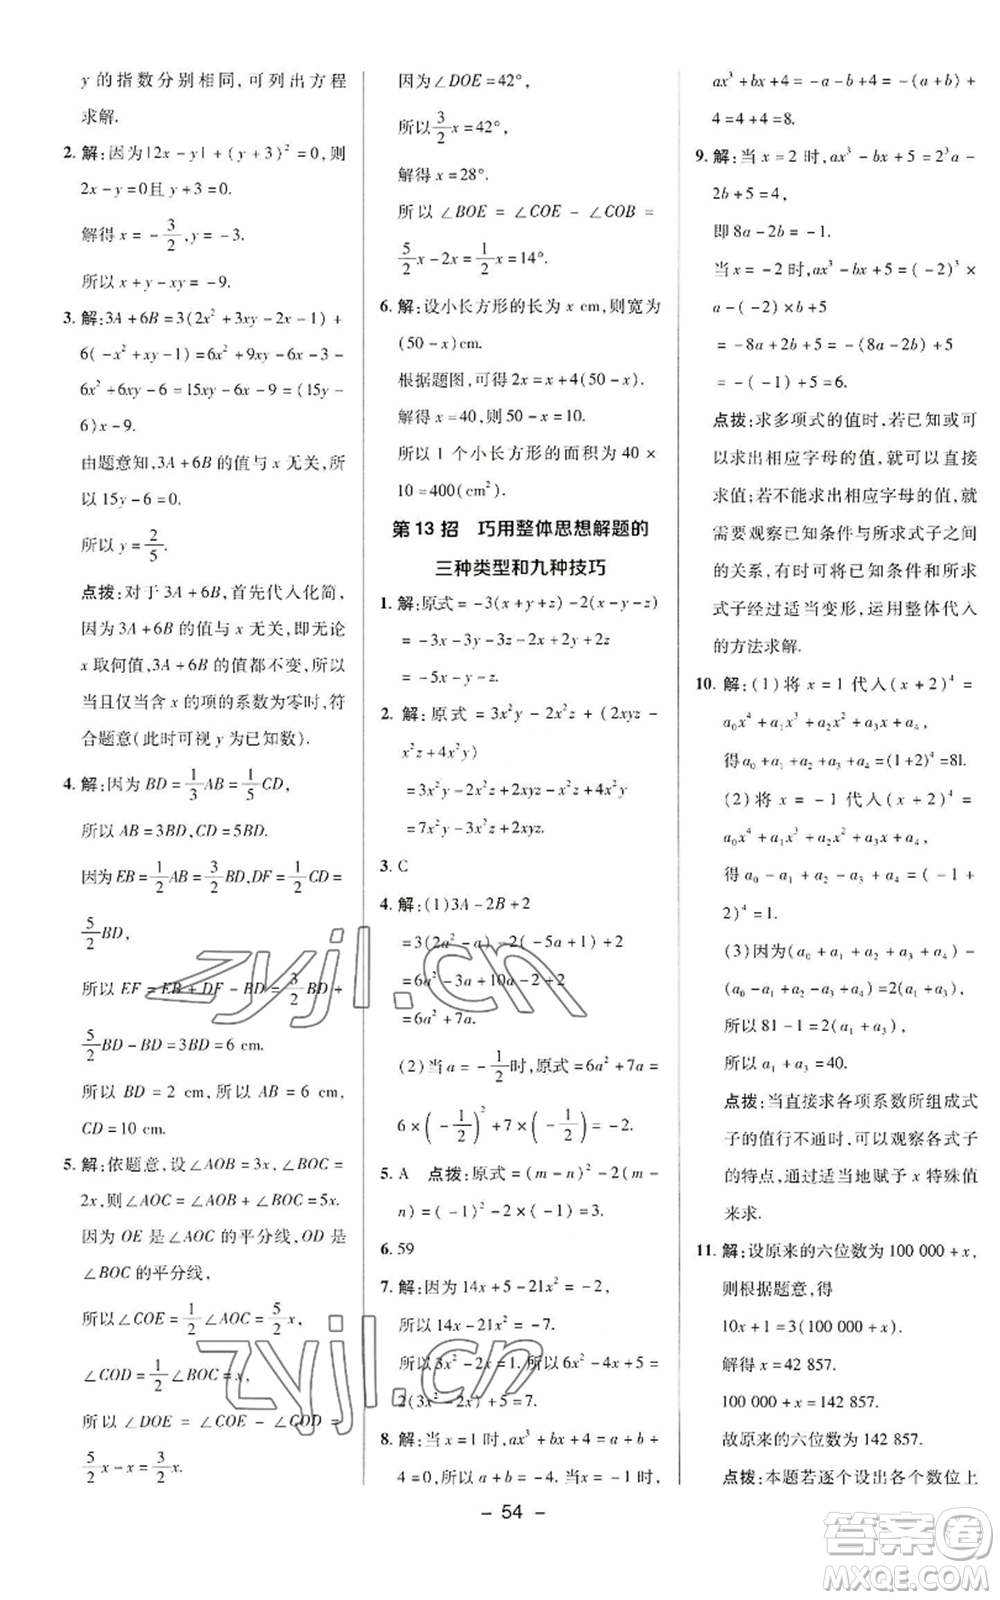 y 的指数分别相同,可列出方程
求解.
2. 解:因为|2x-y|+(y+3)²=0,则
2x-y=0且 y+3=0.
解得 x=-3/2,y=-3.
所以 x+y-xy=-9.
3. 解:3A+6B=3(2x²+3xy-2x-1)+
6(-x²+xy-1)=6x²+9xy-6x-3-
6x²+6xy-6=15xy-6x-9=(15y-
6)x-9.
由题意知,3A+6B 的值与 x 无关,所
以 15y-6=0.
所以 y=2/5.
点拨:对于 3A+6B,首先代入化简,
因为 3A+6B 的值与 x 无关,即无论
x 取何值,3A+6B 的值都不变,所以
当且仅当含 x 的项的系数为零时,符
合题意(此时可视 y 为已知数).
4. 解:因为 BD=1/3AB=1/5CD,
所以 AB=3BD,CD=5BD.
因为 EB=1/2AB=3/2BD,DF=1/2CD=
5/2BD,
所以 EF=EB+DF-BD=3/2BD+
5/2BD-BD=3BD=6 cm.
所以 BD=2 cm,所以 AB=6 cm,
CD=10 cm.
5. 解:依题意,设∠AOB=3x,∠BOC=
2x,则∠AOC=∠AOB+∠BOC=5x.
因为 OE 是∠AOC的平分线,OD 是
∠BOC 的平分线,
所以∠COE=1/2∠AOC=5/2x,
∠COD=1/2∠BOC=x,
所以∠DOE=∠COE-∠COD=
5/2x-x=3/2x.
因为∠DOE=42°,
所以3/2x=42°,
解得 x=28°.
所以∠BOE=∠COE-∠COB=
5/2x-2x=1/2x=14°.
6. 解:设小长方形的长为 x cm,则宽为
(50-x)cm.
根据题图,可得 2x=x+4(50-x).
解得 x=40,则 50-x=10.
所以 1 个小长方形的面积为 40×
10=400(cm²).
第 13 招 巧用整体思想解题的
三种类型和九种技巧
1. 解:原式=-3(x+y+z)-2(x-y-z)
=-3x-3y-3z-2x+2y+2z
=-5x-y-z.
2. 解:原式=3x²y-2x²z+(2xyz-
x²z+4x²y)
=3x²y-2x²z+2xyz-x²z+4x²y
=7x²y-3x²z+2xyz.
3. C
4. 解:(1)3A-2B+2
=3(2a²-a)-2(-5a+1)+2
=6a²-3a+10a-2+2
=6a²+7a.
(2)当 a=-1/2时,原式=6a²+7a=
6×(-1/2)²+7×(-1/2)=-2.
5. A 点拨:原式=(m-n)²-2(m-
n)=(-1)²-2×(-1)=3.
6. 59
7. 解:因为 14x+5-21x²=-2,
所以 14x-21x²=-7.
所以 3x²-2x=1.所以 6x²-4x+5=
2(3x²-2x)+5=2×1+5=7.
8. 解:当 x=1 时,ax³+bx+4=a+b+
4=0,所以 a+b=-4.当 x=-1 时,
ax³+bx+4=-a-b+4=-(a+b)+
4=4+4=8.
9. 解:当 x=2 时,ax³-bx+5=2³a-
2b+5=4,
即 8a-2b=-1.
当 x=-2 时,ax³-bx+5=(-2)³×
a-(-2)×b+5
=-8a+2b+5=-(8a-2b)+5
=-(-1)+5=6.
点拨:求多项式的值时,若已知或可
以求出相应字母的值,就可以直接
求值;若不能求出相应字母的值,就
需要观察已知条件与所求式子之间
的关系,有时可将已知条件和所求
式子经过适当变形,运用整体代入
的方法求解.
10. 解:(1)将 x=1 代入(x+2)⁴=
a₀x⁴+a₁x³+a₂x²+a₃x+a₄,
得 a₀+a₁+a₂+a₃+a₄=(1+2)⁴=81.
(2)将 x=-1 代入(x+2)⁴=
a₀x⁴+a₁x³+a₂x²+a₃x+a₄,
得 a₀-a₁+a₂-a₃+a₄=(-1+
2)⁴=1.
(3)因为(a₀+a₁+a₂+a₃+a₄)-
(a₀-a₁+a₂-a₃+a₄)=2(a₁+a₃),
所以 81-1=2(a₁+a₃),
所以 a₁+a₃=40.
点拨:当直接求各项系数所组成式
子的值行不通时,可以观察各式子
的特点,通过适当地赋予 x 特殊值
来求.
11. 解:设原来的六位数为 100 000+x,
则根据题意,得
10x+1=3(100 000+x).
解得 x=42 857.
100 000+x=142 857.
故原来的六位数为 142 857.
点拨:本题若逐个设出各个数位上
- 54 -
zyjl.cn
zyjl.cn
答案圈
MXQE.COM